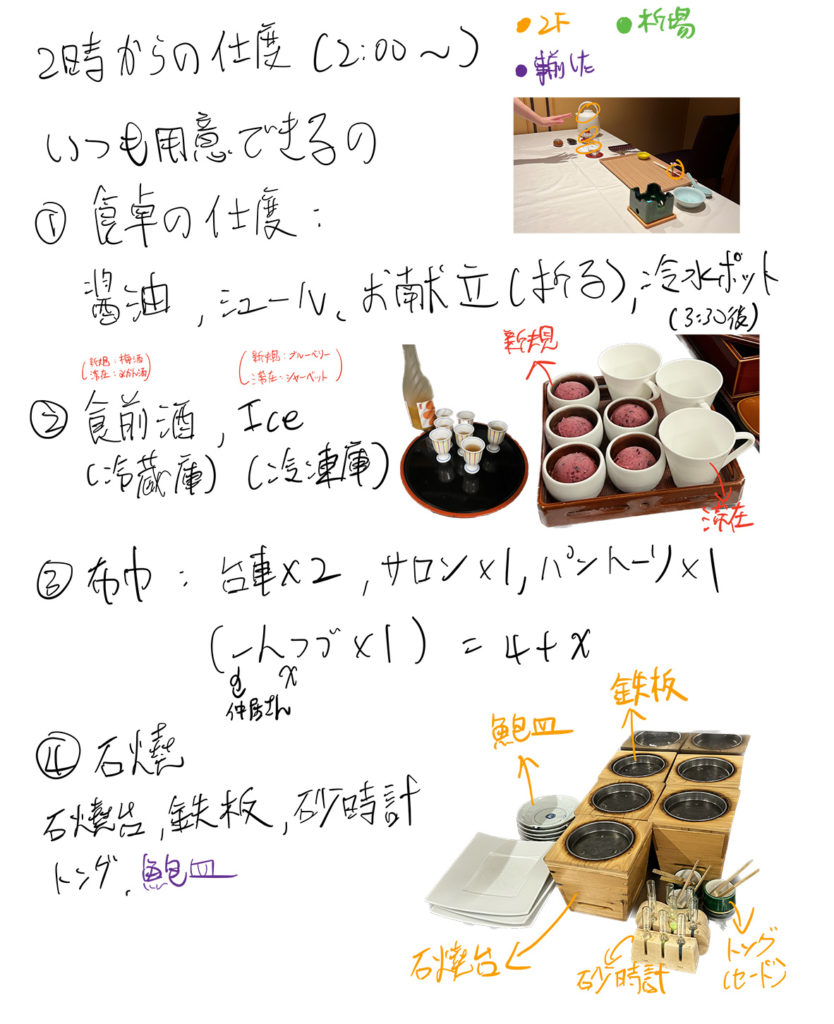 2時からの仕度 (2:00〜)
2F
折場
揃した
いつも用意できるの
① 食卓の仕度:
醤油, ミュール、お献立(折る), 冷水ポット
(3:30後)
(新規:梅酒
滞在:みかん酒)
(新規:ブルーベリー
滞在:シャーベット)
新規
② 食前酒, Ice
(冷蔵庫) (冷凍庫)
滞在
③ 布巾: 台車×2, サロン×1, パントーリ×1
(一人づつ×1) = 4+x
x
仲居さん
④ 石燒
石燒台, 鉄板, 砂時計
トング, 鮑皿
鮑皿
鉄板
石燒台
砂時計
トング